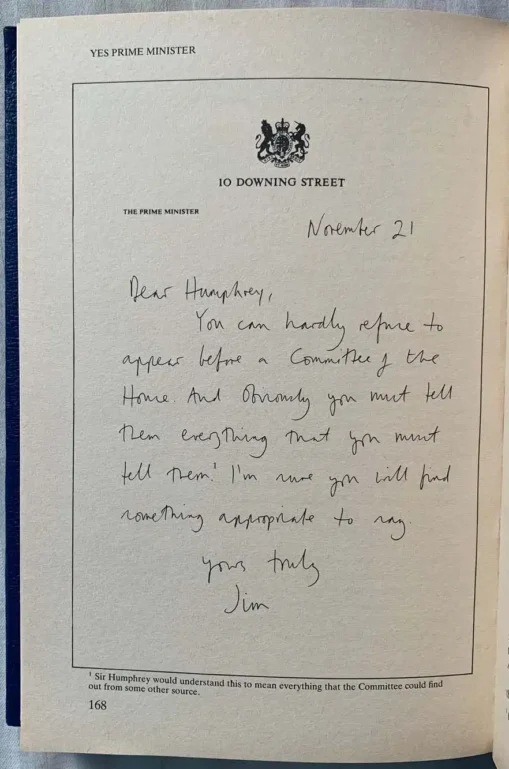 YES PRIME MINISTER
10 DOWNING STREET
THE PRIME MINISTER
November 21
Dear Humphrey,
You can hardly refuse to
appear before a Committee of the
House. And Obviously you must tell
them everything that you must
tell them.¹ I'm sure you will find
something appropriate to say.
yours truly
Jim
¹ Sir Humphrey would understand this to mean everything that the Committee could find
out from some other source.
168